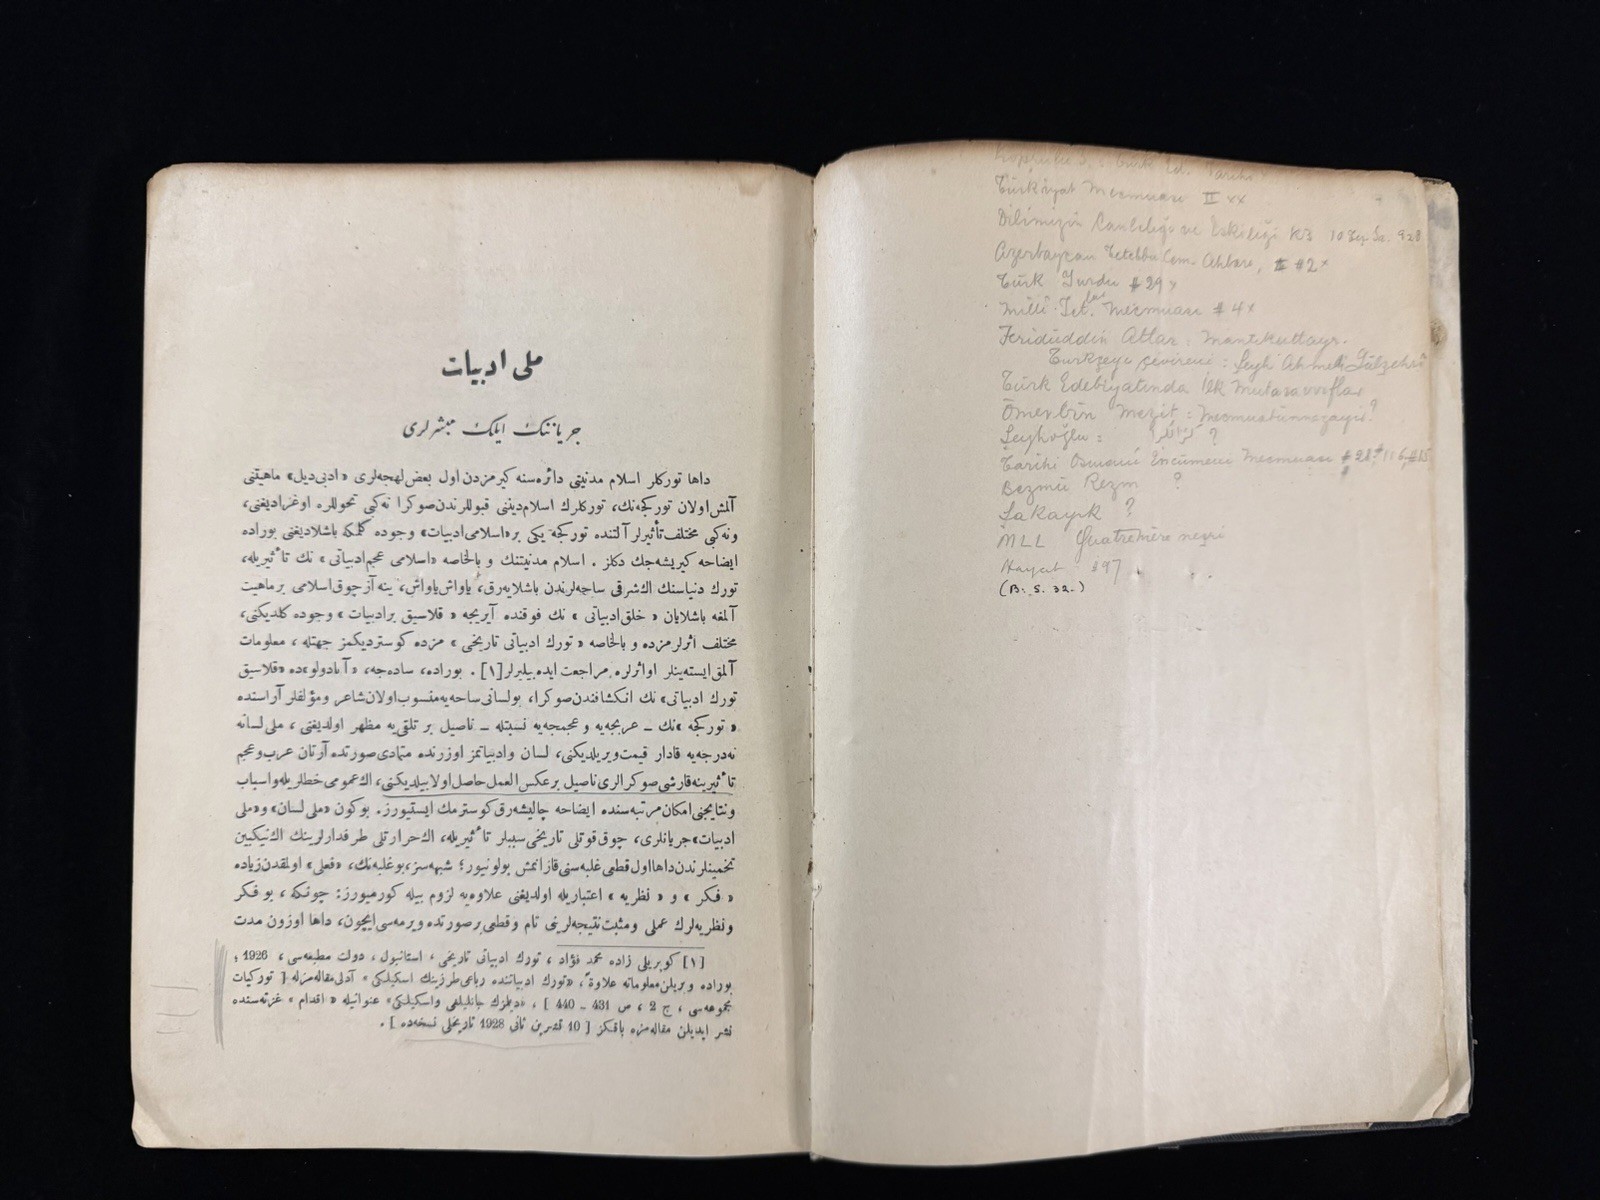 ملی ادبیات
جریاننك ایلك مبشرلری
داها توركلر اسلام مدنیتی دائره‌سنه كیرمزدن اول بعض لهجه‌لری «ادبی دیل» ماهیتنی
آلمش اولان توركجه‌نك، توركلرك اسلام دیننی قبوللرندن صوكرا نه كبی تحوللره اوغرادیغنی،
ونه كبی مختلف تأثیرلر آلتنده توركجه یكی بر «اسلامی ادبیات» وجوده كلمكه باشلادیغنی بوراده
ایضاحه كیریشه‌جك دكلز . اسلام مدنیتنك و بالخاصه «اسلامی عجم ادبیاتی» نك تأثیریله،
تورك دنیاسنك اك شرقی ساحه‌لرندن باشلایه‌رق، یاواش یاواش، ینه آز چوق اسلامی بر ماهیت
آلمغه باشلایان « خلق ادبیاتی » نك فوقنده آیریجه « قلاسیق بر ادبیات » وجوده كلدیكنی،
مختلف اثرلرمزده و بالخاصه « تورك ادبیاتی تاریخی » مزده كوستردیكمز جهتله ، معلومات
آلمق ایسته‌ینلر او اثرلره مراجعت ایده بیلیرلر [١] . بوراده، ساده‌جه، «آنادولو» ده «قلاسیق
تورك ادبیاتی» نك انكشافندن صوكرا، بو لسانی ساحه‌یه منسوب اولان شاعر و مؤلفلر آراسنده
« توركجه » نك ــ عربجه‌یه و عجمجه‌یه نسبتله ــ ناصیل بر تلقی‌یه مظهر اولدیغنی ، ملی لسانه
نه درجه‌یه قادار قیمت ویریلدیكنی، لسان و ادبیاتمز اوزرنده متمادی صورتده آرتان عرب و عجم
تأثیرینه قارشی صوكرالری ناصیل بر عكس العمل حاصل اولابیلدیكنی، اك عمومی خطلریله و اسباب
و نتایجنی امكان مرتبه‌سنده ایضاحه چالیشه‌رق كوسترمك ایستیورز. بوكون «ملی لسان» و «ملی
ادبیات» جریانلری، چوق قوتلی تاریخی سببلر تأثیریله، اك حرارتلی طرفدارلرینك اك نیكبین
تخمینلرندن داها اول قطعی غلبه‌سنی قازانمش بولونیور؛ شبهه‌سز، بو غلبه‌نك، «فعلی» اولمقدن زیاده
« فكر » و « نظریه » اعتباریله اولدیغنی علاوه‌یه لزوم بیله كورمیورز: چونكه ، بو فكر
و نظریه‌لرك عملی و مثبت نتیجه‌لرینی تام و قطعی بر صورتده ویرمه‌سی ایچون، داها اوزون مدت
[١] كوپریلی زاده محمد فؤاد ، تورك ادبیاتی تاریخی ، استانبول ، دولت مطبعه‌سی ، 1926 ؛
بوراده ویریلن معلوماته علاوةً، «تورك ادبیاتنده رباعی طرزینك اسكیلكی» آدلی مقاله‌مزله [ توركیات
مجموعه‌سی ، ج 2 ، ص 431 ـ 440 ] ، «دیلمزك جانلیلغی و اسكیلكی» عنوانیله « اقدام » غزته‌سنده
نشر ایدیلن مقاله‌مزه باقكز [ 10 تشرین ثانی 1928 تاریخلی نسخه‌ده ] .
Köprülü Z. : Türk Ed. Tarihi
Türkiyat Mecmuası II xx
Dilimizin Canlılığı ve Eskiliği
Azerbaycan #2x
Türk Yurdu #29x
Milli Tet. Mecmuası #4x
Feridüddin Attar : Mantıkuttayr.
Türkçeye çevireni : Şeyh Ahmedi Gülşehri
Türk Edebiyatında İlk Mutasavvıflar
Ömerbin Mezit : Mecmuatünnezayir ?
Şeyhoğlu : ?
Tarihi Osmani Encümeni Mecmuası
Bezmü Rezm ?
Şakayık ?
MLL Quatremère neşri
Hayat
(B. S. 32.)